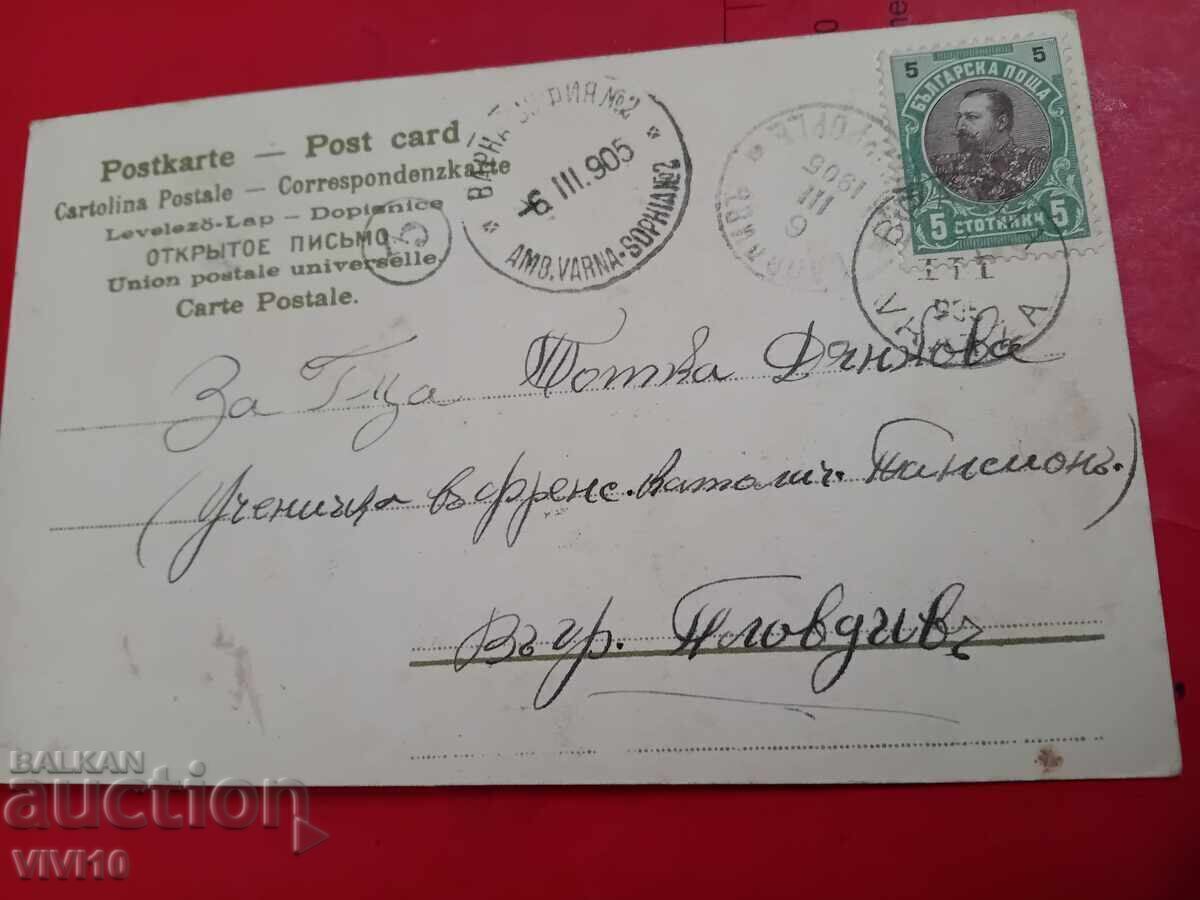 Postkarte — Post card
Cartolina Postale — Correspondenzkarte
Levelező-Lap — Dopisnice
ОТКРЫТОЕ ПИСЬМО
Union postale universelle.
Carte Postale.
ВАРНА СОФИЯ №2
-6 III.905
AMB.VARNA-SOPHIA №2
6
III
1905
5 5
БЪЛГАРСКА ПОЩА
5 СТОТИНКИ 5
III
905
За Г-ца Тотка
(Ученичка въ Френс. Католич. Пансионъ.)
Въ гр. Пловдивъ
BALKAN
auction
VIVI10